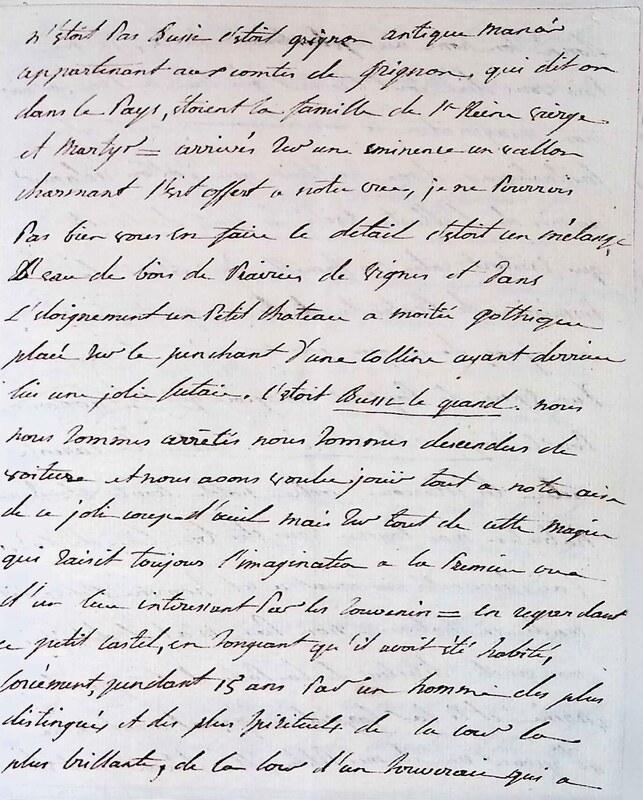 n'étoit Pas Bussi c'étoit grignon antique manoir
appartenant aux comtes de grignon, qui dit on
dans le Pays, étoient la famille de Ste Reine vierge
et Martyr = arrivés sur une éminence un vallon
charmant s'est offert a notre vue, je ne Pourrois
Pas bien vous en faire le détail c'étoit un mélange
D'eau de bois de Prairies de vignes et dans
L'éloignement un Petit chateau a moitié gothique
placé sur le penchant d'une colline ayant derriere
lui une jolie futaie. c'étoit Bussi le grand. nous
nous sommes arrêtés nous sommes descendus de
voiture et nous avons voulu jouir tout a notre aise
de ce joli coup d'œuil mais sur tout de cette magie
qui saisit toujours l'imagination a la Premiere vue
d'un lieu interessant Par les souvenirs = en regardant
ce petit castel, en songeant qu'il avoit été habité,
forcément, pendant 15 ans Par un homme des plus
distingués et des plus spirituels de la cour la
plus brillante, de la cour d'un souverain qui a